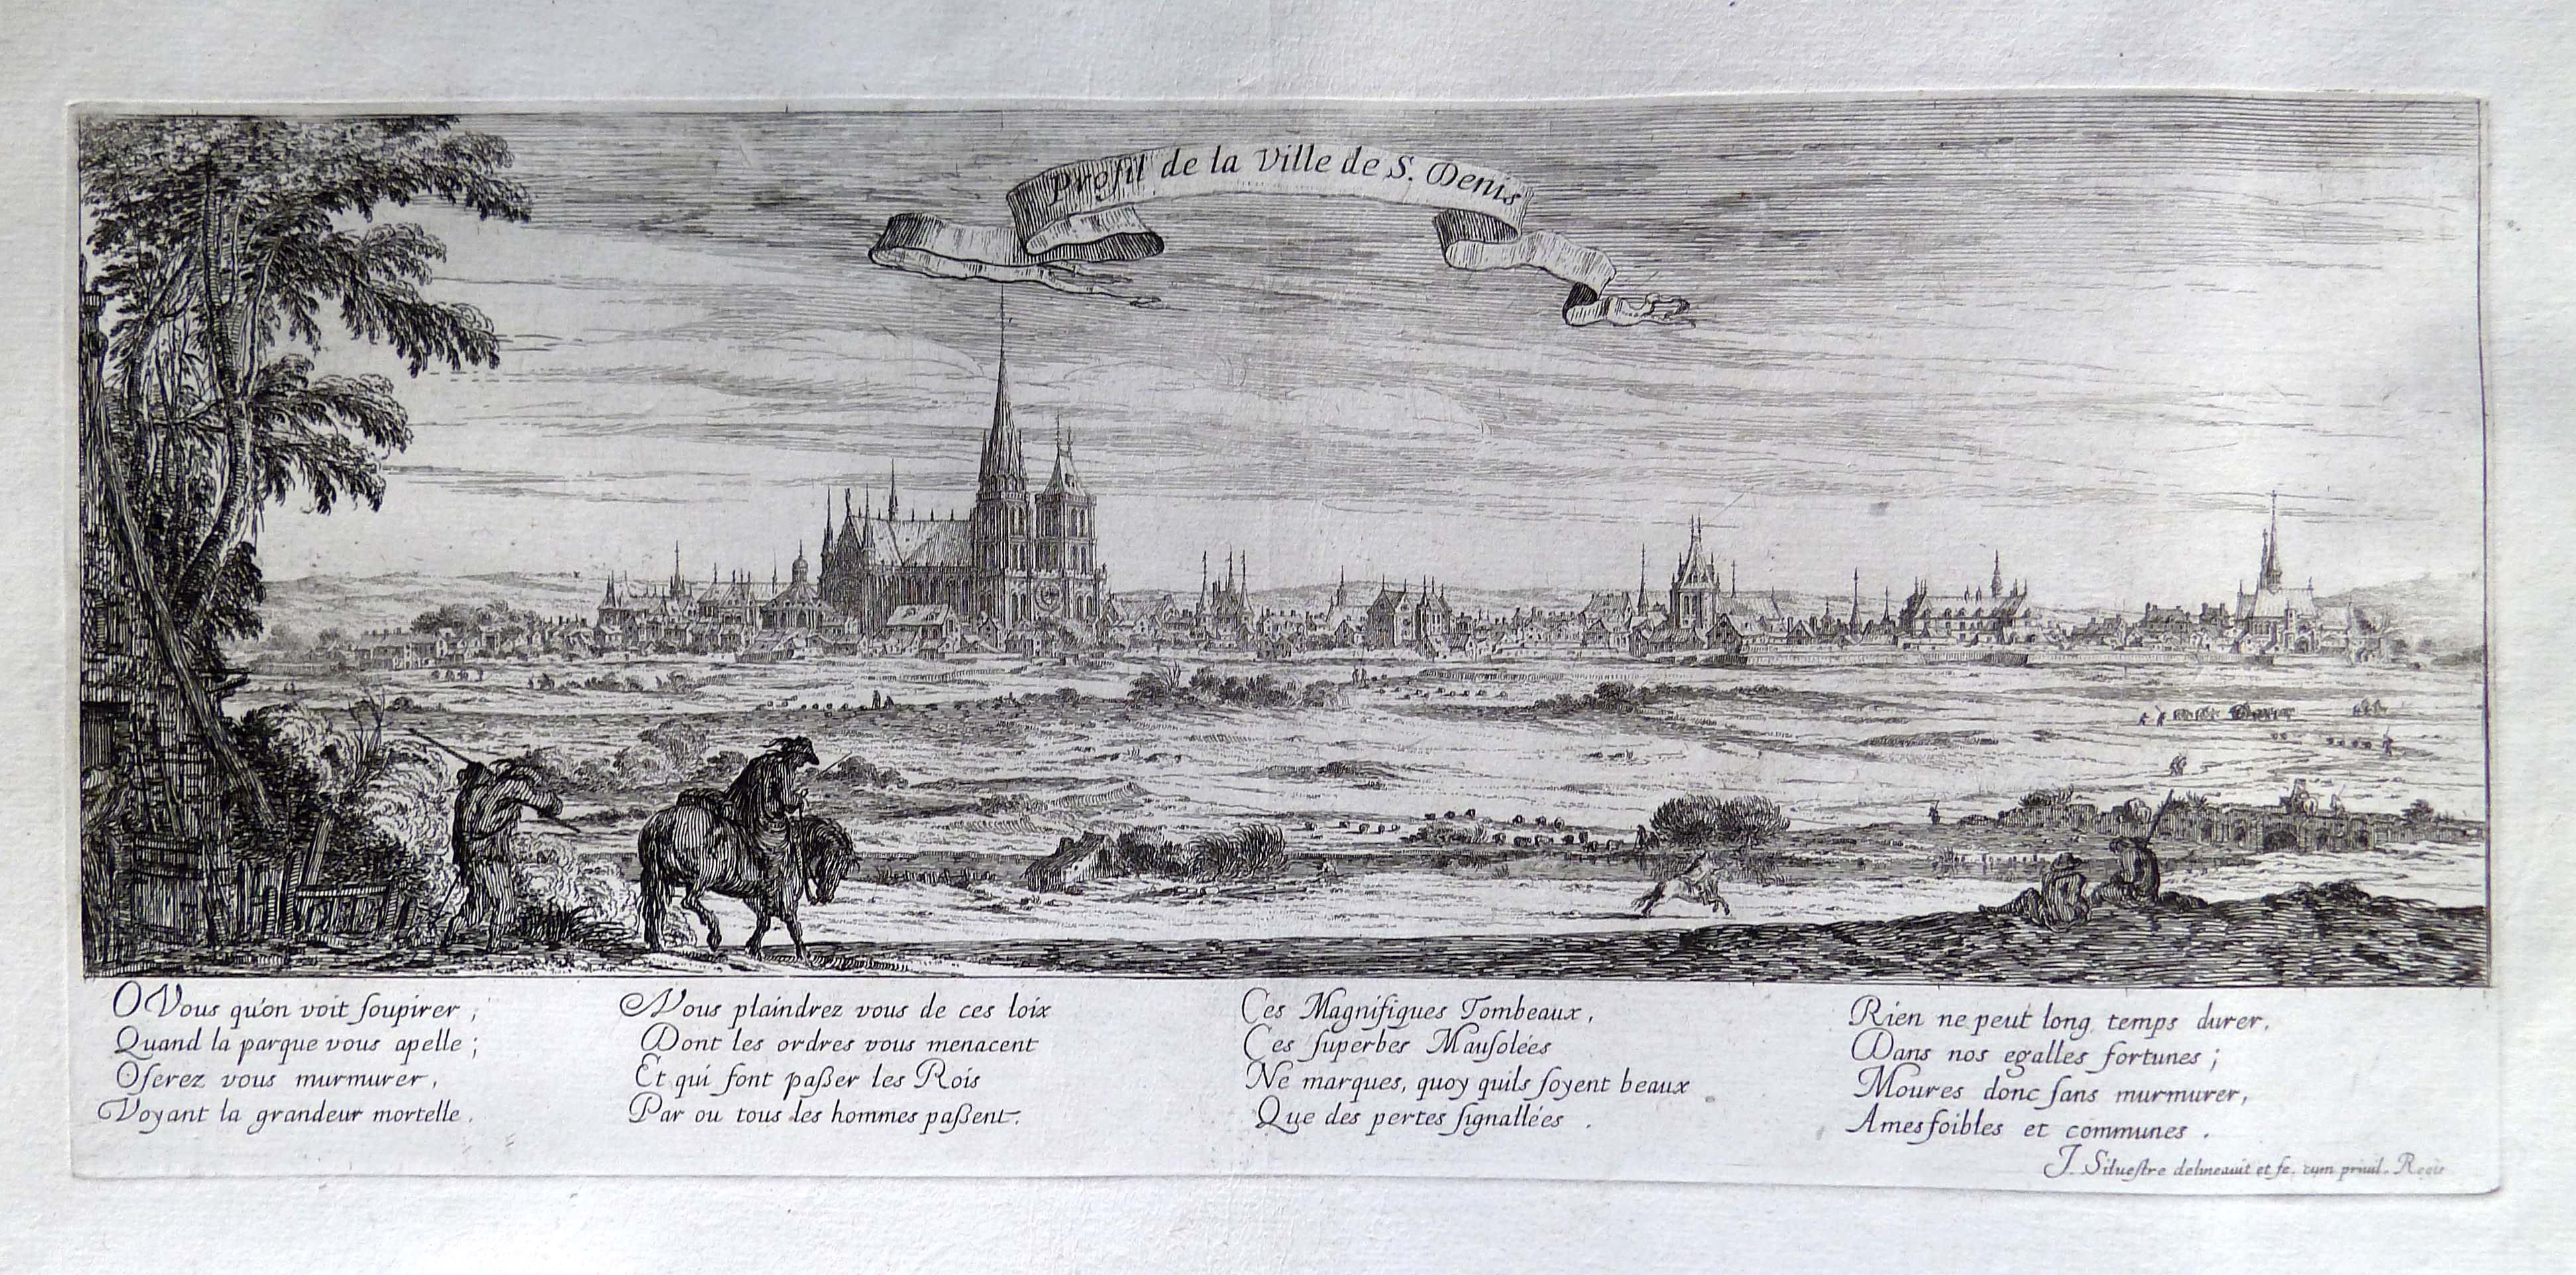 Profil de la Ville de S. Denis
O Vous qu'on voit ſoupirer ;
Quand la parque vous apelle ;
Oſerez vous murmurer,
Voyant la grandeur mortelle.
Vous plaindrez vous de ces loix
Dont les ordres vous menacent
Et qui font paßer les Rois
Par ou tous les hommes paßent.
Ces Magnifiques Tombeaux,
Ces ſuperbes Mauſolées
Ne marques, quoy quils ſoyent beaux
Que des pertes ſignallées .
Rien ne peut long temps durer,
Dans nos egalles fortunes ;
Moures donc ſans murmurer,
Ames foibles et communes .
J. Silueſtre delineauit et fe. cum priuil. Regis